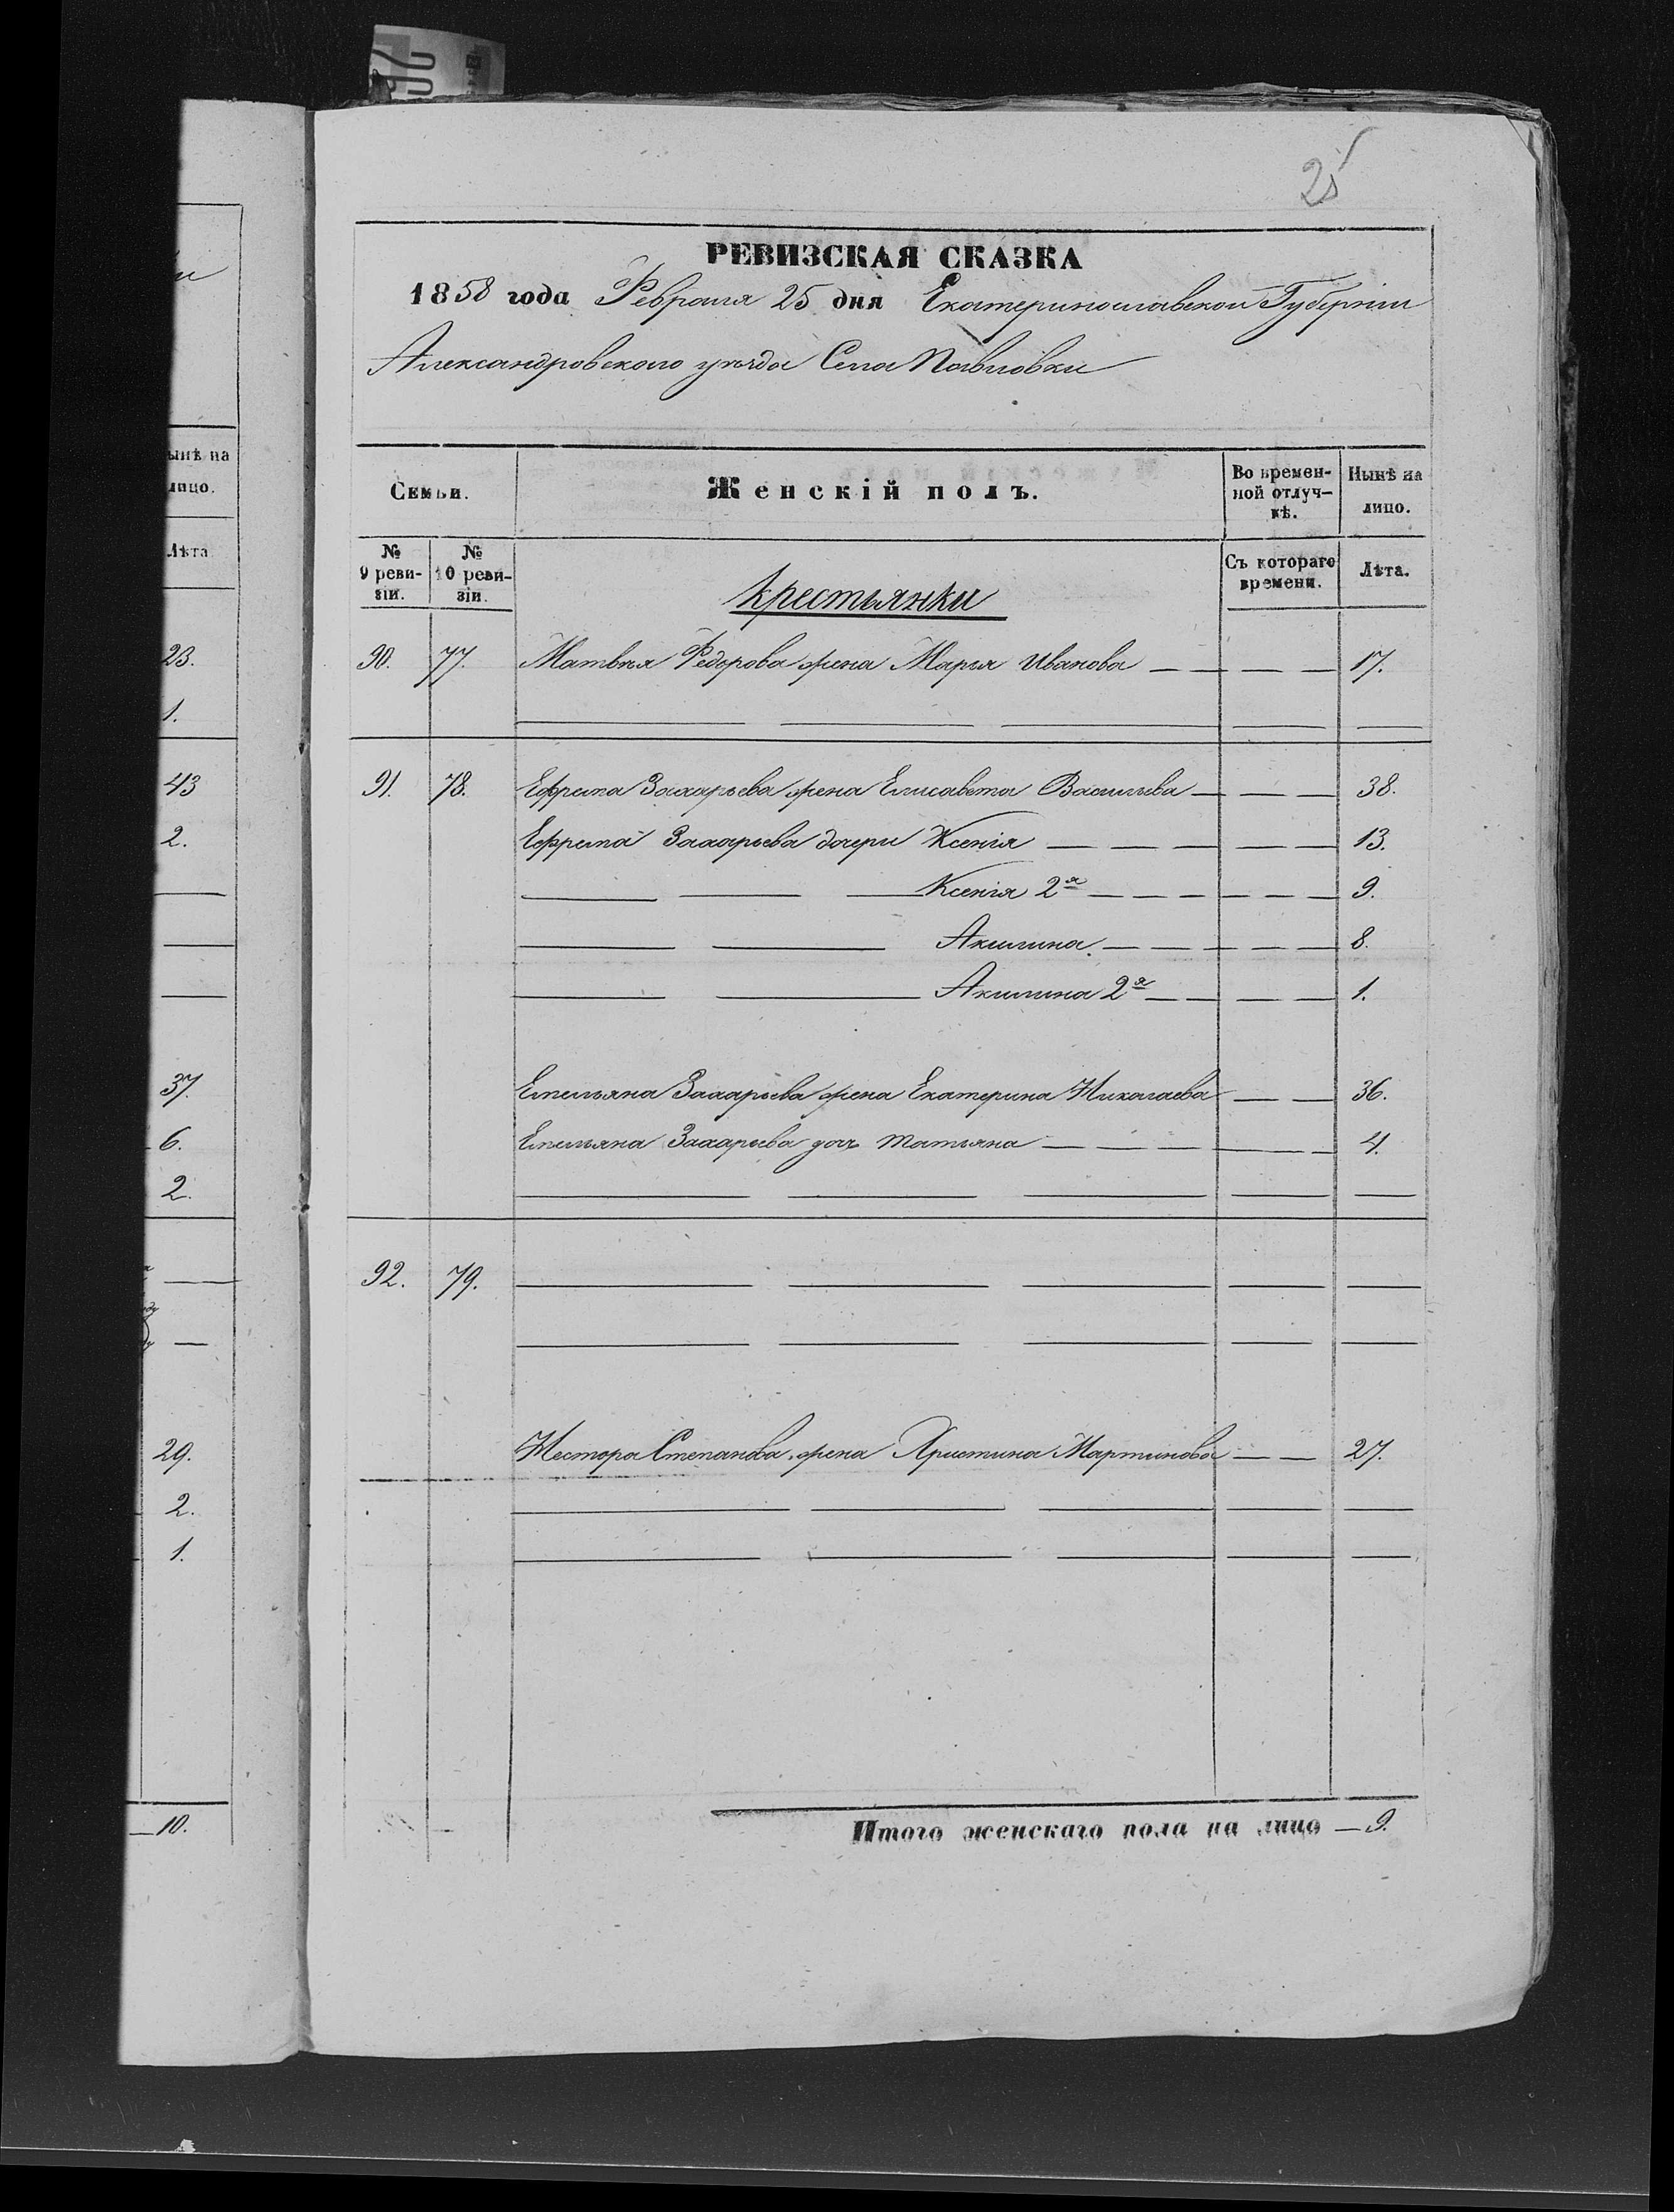 25
РЕВИЗСКАЯ СКАЗКА
1858 года Февраля 25 дня Екатеринославской Губерніи
Александровскаго уѣзда Села Павловки
Семьи. Женскій полъ. Во времен-ной отлуч-кѣ. Нынѣ на лицо.
№ 9 реви-зіи. № 10 реви-зіи. Крестьянки Съ котораго времени. Лѣта.
90. 77. Матвѣя Федорова жена Марья Иванова — — — — 17.
91. 78. Ефрема Захарьева жена Елисавета Васильева — — — 38.
Ефрема Захарьева дочери Ксенія — — — — — 13.
Ксенія 2я — — — — — — 9.
Акилина — — — — — 8.
Акилина 2я — — — — 1.
Емельяна Захарьева жена Екатерина Николаева — — 36.
Емельяна Захарьева дочь Татьяна — — — — — 4.
92. 79.
Нестора Степанова жена Христина Мартинова — — 27.
Итого женскаго пола на лицо — 9.
ынѣ на
лицо.
Лѣта
23.
1.
43
2.
37.
6.
2.
29.
2.
1.
10.